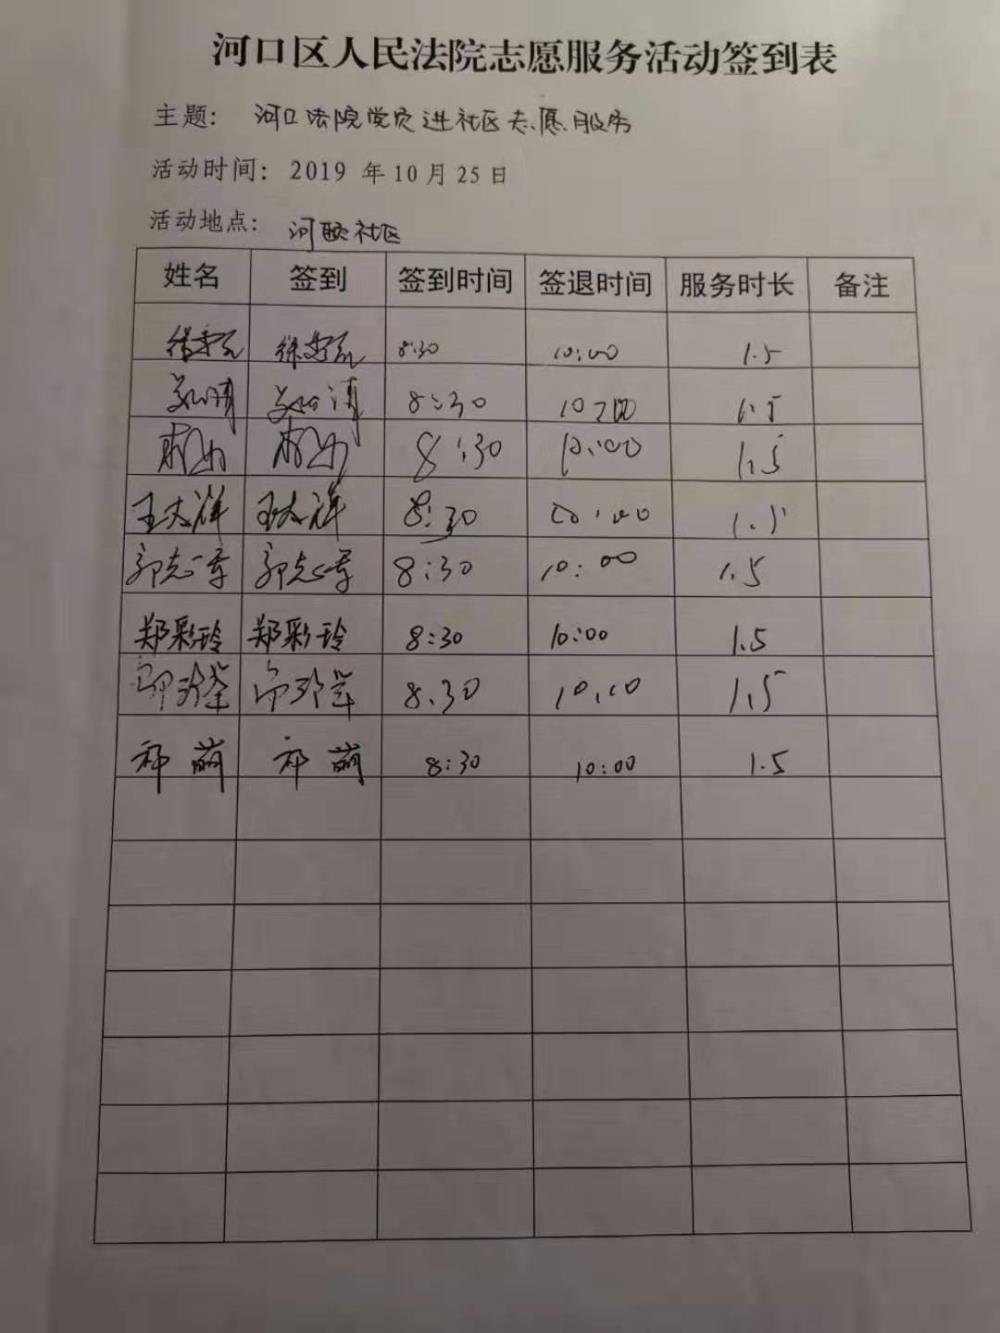 河口区人民法院志愿服务活动签到表
主题： 河口法院党员进社区志愿服务
活动时间：2019 年 10 月 25 日
活动地点： 社区
姓名 签到 签到时间 签退时间 服务时长 备注
8:30 10:00 1.5
8:30 10:00 1.5
8:30 10:00 1.5
王文祥 王文祥 8:30 10:00 1.5
郭志 郭志 8:30 10:00 1.5
郑彩玲 郑彩玲 8:30 10:00 1.5
8.30 10:00 1.5
祁萌 祁萌 8:30 10:00 1.5